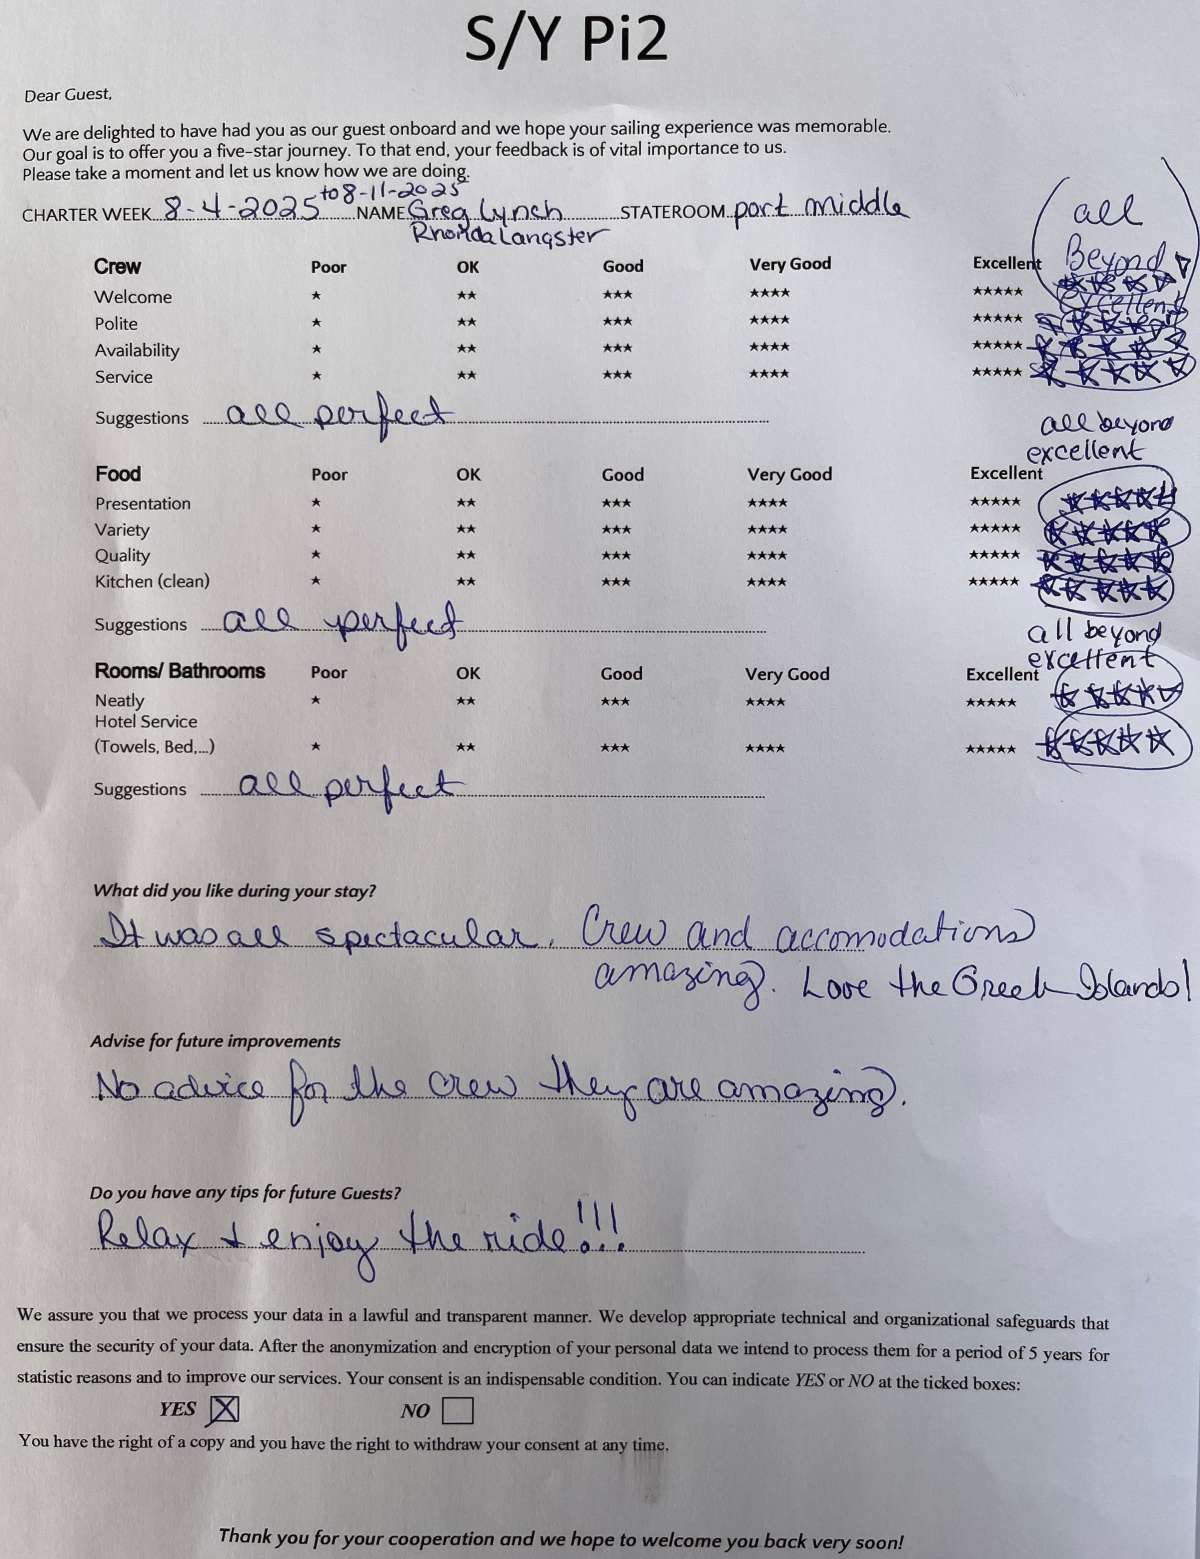 S/Y Pi2
Dear Guest,
We are delighted to have had you as our guest onboard and we hope your sailing experience was memorable.
Our goal is to offer you a five-star journey. To that end, your feedback is of vital importance to us.
Please take a moment and let us know how we are doing.
CHARTER WEEK 8-4-2025 to 8-11-2025 NAME Greg Lynch STATEROOM port middle
Rhonda Langster
all
Beyond
excellent
Crew Poor OK Good Very Good Excellent
Welcome ★ ★★ ★★★ ★★★★ ★★★★★
Polite ★ ★★ ★★★ ★★★★ ★★★★★
Availability ★ ★★ ★★★ ★★★★ ★★★★★
Service ★ ★★ ★★★ ★★★★ ★★★★★
Suggestions all perfect
all beyond
excellent
Food Poor OK Good Very Good Excellent
Presentation ★ ★★ ★★★ ★★★★ ★★★★★
Variety ★ ★★ ★★★ ★★★★ ★★★★★
Quality ★ ★★ ★★★ ★★★★ ★★★★★
Kitchen (clean) ★ ★★ ★★★ ★★★★ ★★★★★
Suggestions all perfect
all beyond
excellent
Rooms/ Bathrooms Poor OK Good Very Good Excellent
Neatly ★ ★★ ★★★ ★★★★ ★★★★★
Hotel Service
(Towels, Bed,...) ★ ★★ ★★★ ★★★★ ★★★★★
Suggestions all perfect
What did you like during your stay?
It was all spectacular. Crew and accomodations
amazing. Love the Greek Islands!
Advise for future improvements
No advice for the crew they are amazing.
Do you have any tips for future Guests?
Relax & enjoy the ride!!!
We assure you that we process your data in a lawful and transparent manner. We develop appropriate technical and organizational safeguards that
ensure the security of your data. After the anonymization and encryption of your personal data we intend to process them for a period of 5 years for
statistic reasons and to improve our services. Your consent is an indispensable condition. You can indicate YES or NO at the ticked boxes:
YES ☒ NO ☐
You have the right of a copy and you have the right to withdraw your consent at any time.
Thank you for your cooperation and we hope to welcome you back very soon!